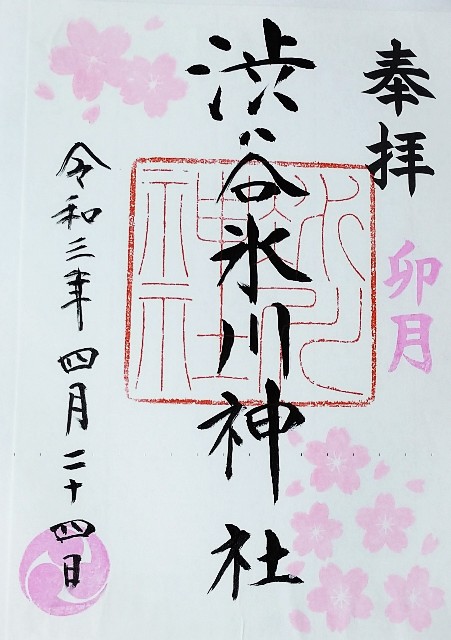 奉拝
卯月
渋谷氷川神社
令和三年四月二十四日